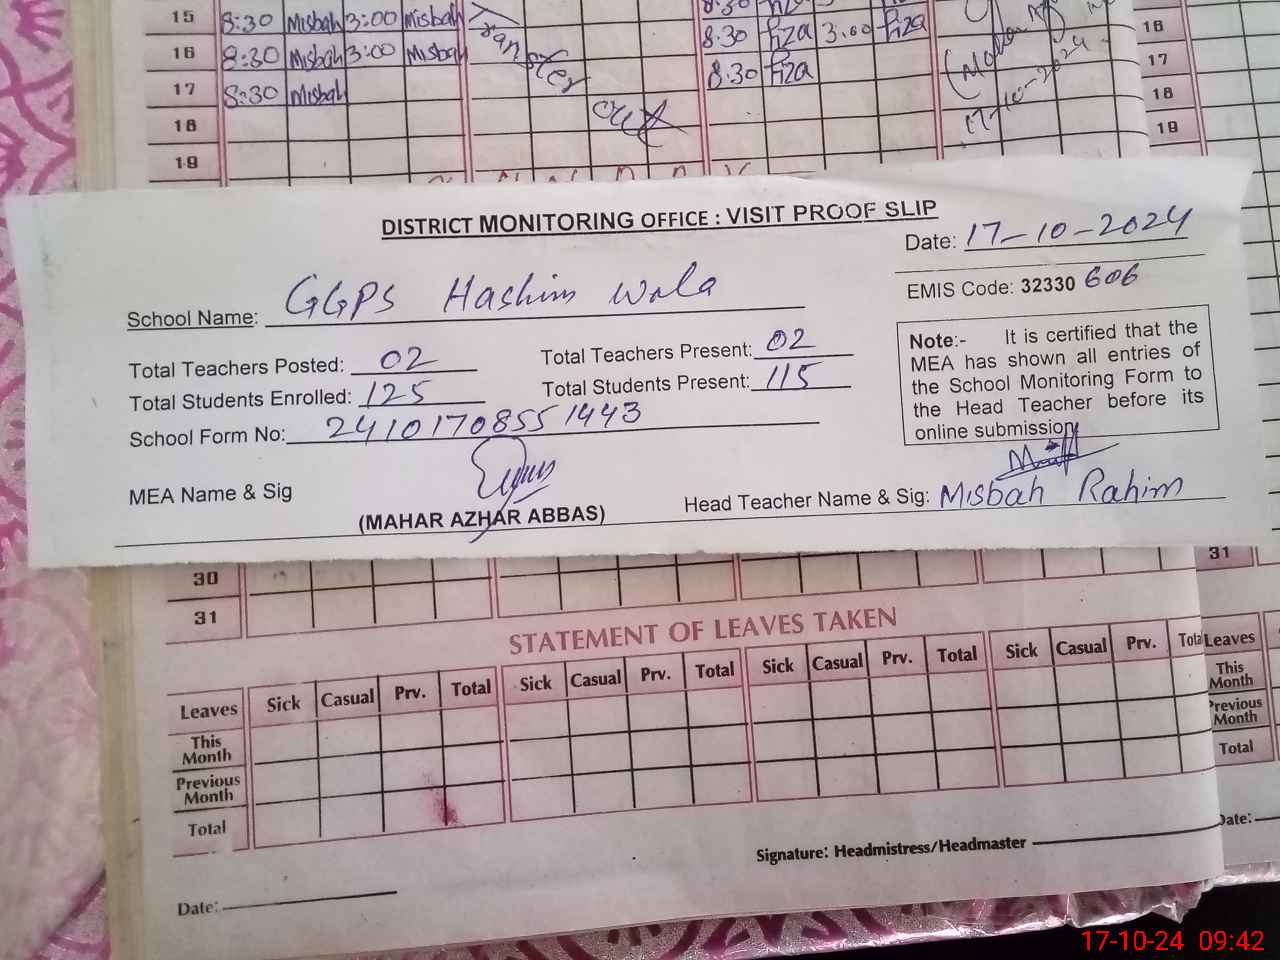 15 8:30 Misbah 3:00 Misbah 8:30
16 8:30 Misbah 3:00 Misbah 8:30 Fiza 3:00 Fiza 16
17 8:30 Misbah 8:30 Fiza 17
Transfer out
17-10-2024
18 18
19 19
DISTRICT MONITORING OFFICE : VISIT PROOF SLIP
Date: 17-10-2024
School Name: GGPS Hashim Wala
EMIS Code: 32330 606
Total Teachers Posted: 02 Total Teachers Present: 02
Total Students Enrolled: 125 Total Students Present: 115
School Form No: 24101708551443
Note:- It is certified that the
MEA has shown all entries of
the School Monitoring Form to
the Head Teacher before its
online submission
MEA Name & Sig
(MAHAR AZHAR ABBAS)
Head Teacher Name & Sig: Misbah Rahim
30
31 31
STATEMENT OF LEAVES TAKEN
Leaves Sick Casual Prv. Total Sick Casual Prv. Total Sick Casual Prv. Total Sick Casual Prv. Total Leaves
This Month This Month
Previous Month Previous Month
Total Total
Signature: Headmistress/Headmaster
Date: Date:
17-10-24 09:42